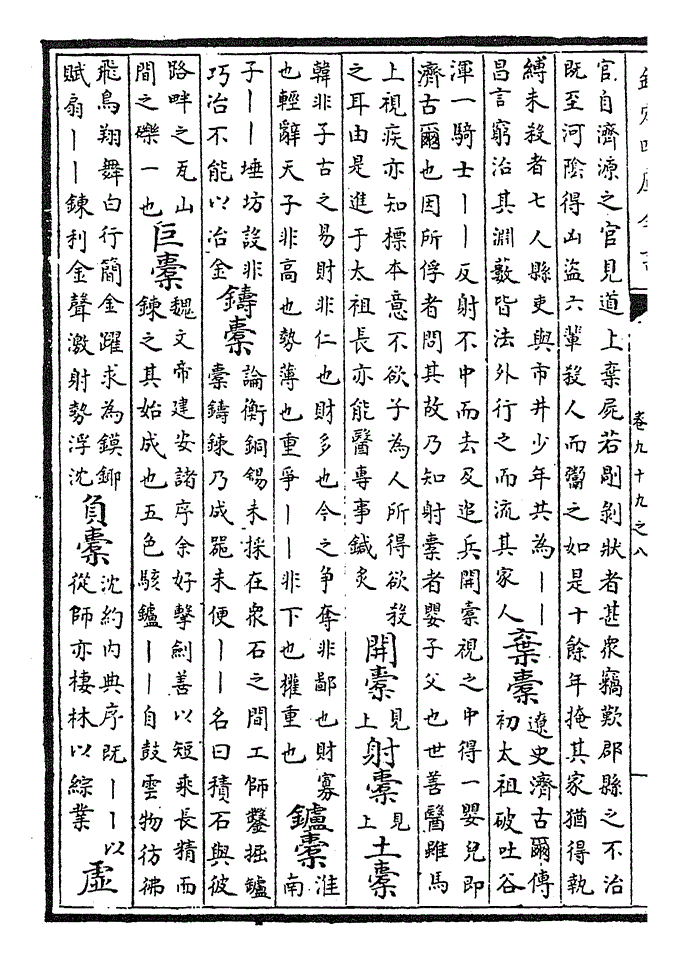 卷九十九之八
官自濟源之官見道上棄屍若剮剝狀者甚衆竊歎郡縣之不治
既至河陰得山盜六輩殺人而鬻之如是十餘年掩其家猶得執
縛未殺者七人縣吏與市井少年共為丨丨
昌言窮治其淵藪皆法外行之而流其家人
棄橐
遼史濟古爾傳
初太祖破吐谷
渾一騎士丨丨反射不中而去及追兵開橐視之中得一嬰兒即
濟古爾也因所俘者問其故乃知射橐者嬰子父也世善醫雖馬
上視疾亦知標本意不欲子為人所得欲殺
之耳由是進于太祖長亦能醫專事鍼灸
開橐
見
上
射橐
見
上
土橐
韓非子古之易財非仁也財多也今之争奪非鄙也財寡
也輕辭天子非高也勢薄也重爭丨丨非下也權重也
鑪橐
淮
南
子丨丨埵坊設非
巧冶不能以冶金
鑄橐
論衡銅錫未採在衆石之間工師鑿掘鑪
橐鑄鍊乃成器未便丨丨名曰積石與彼
路畔之瓦山
間之礫一也
巨橐
魏文帝建安諸序余好擊劍善以短乘長精而
鍊之其始成也五色駭鑪丨丨自鼓雲物彷彿
飛鳥翔舞白行簡金躍求為鏌鋣
賦扇丨丨鍊利金聲激射勢浮沈
負橐
沈約内典序既丨丨以
從師亦棲林以綜業
虛